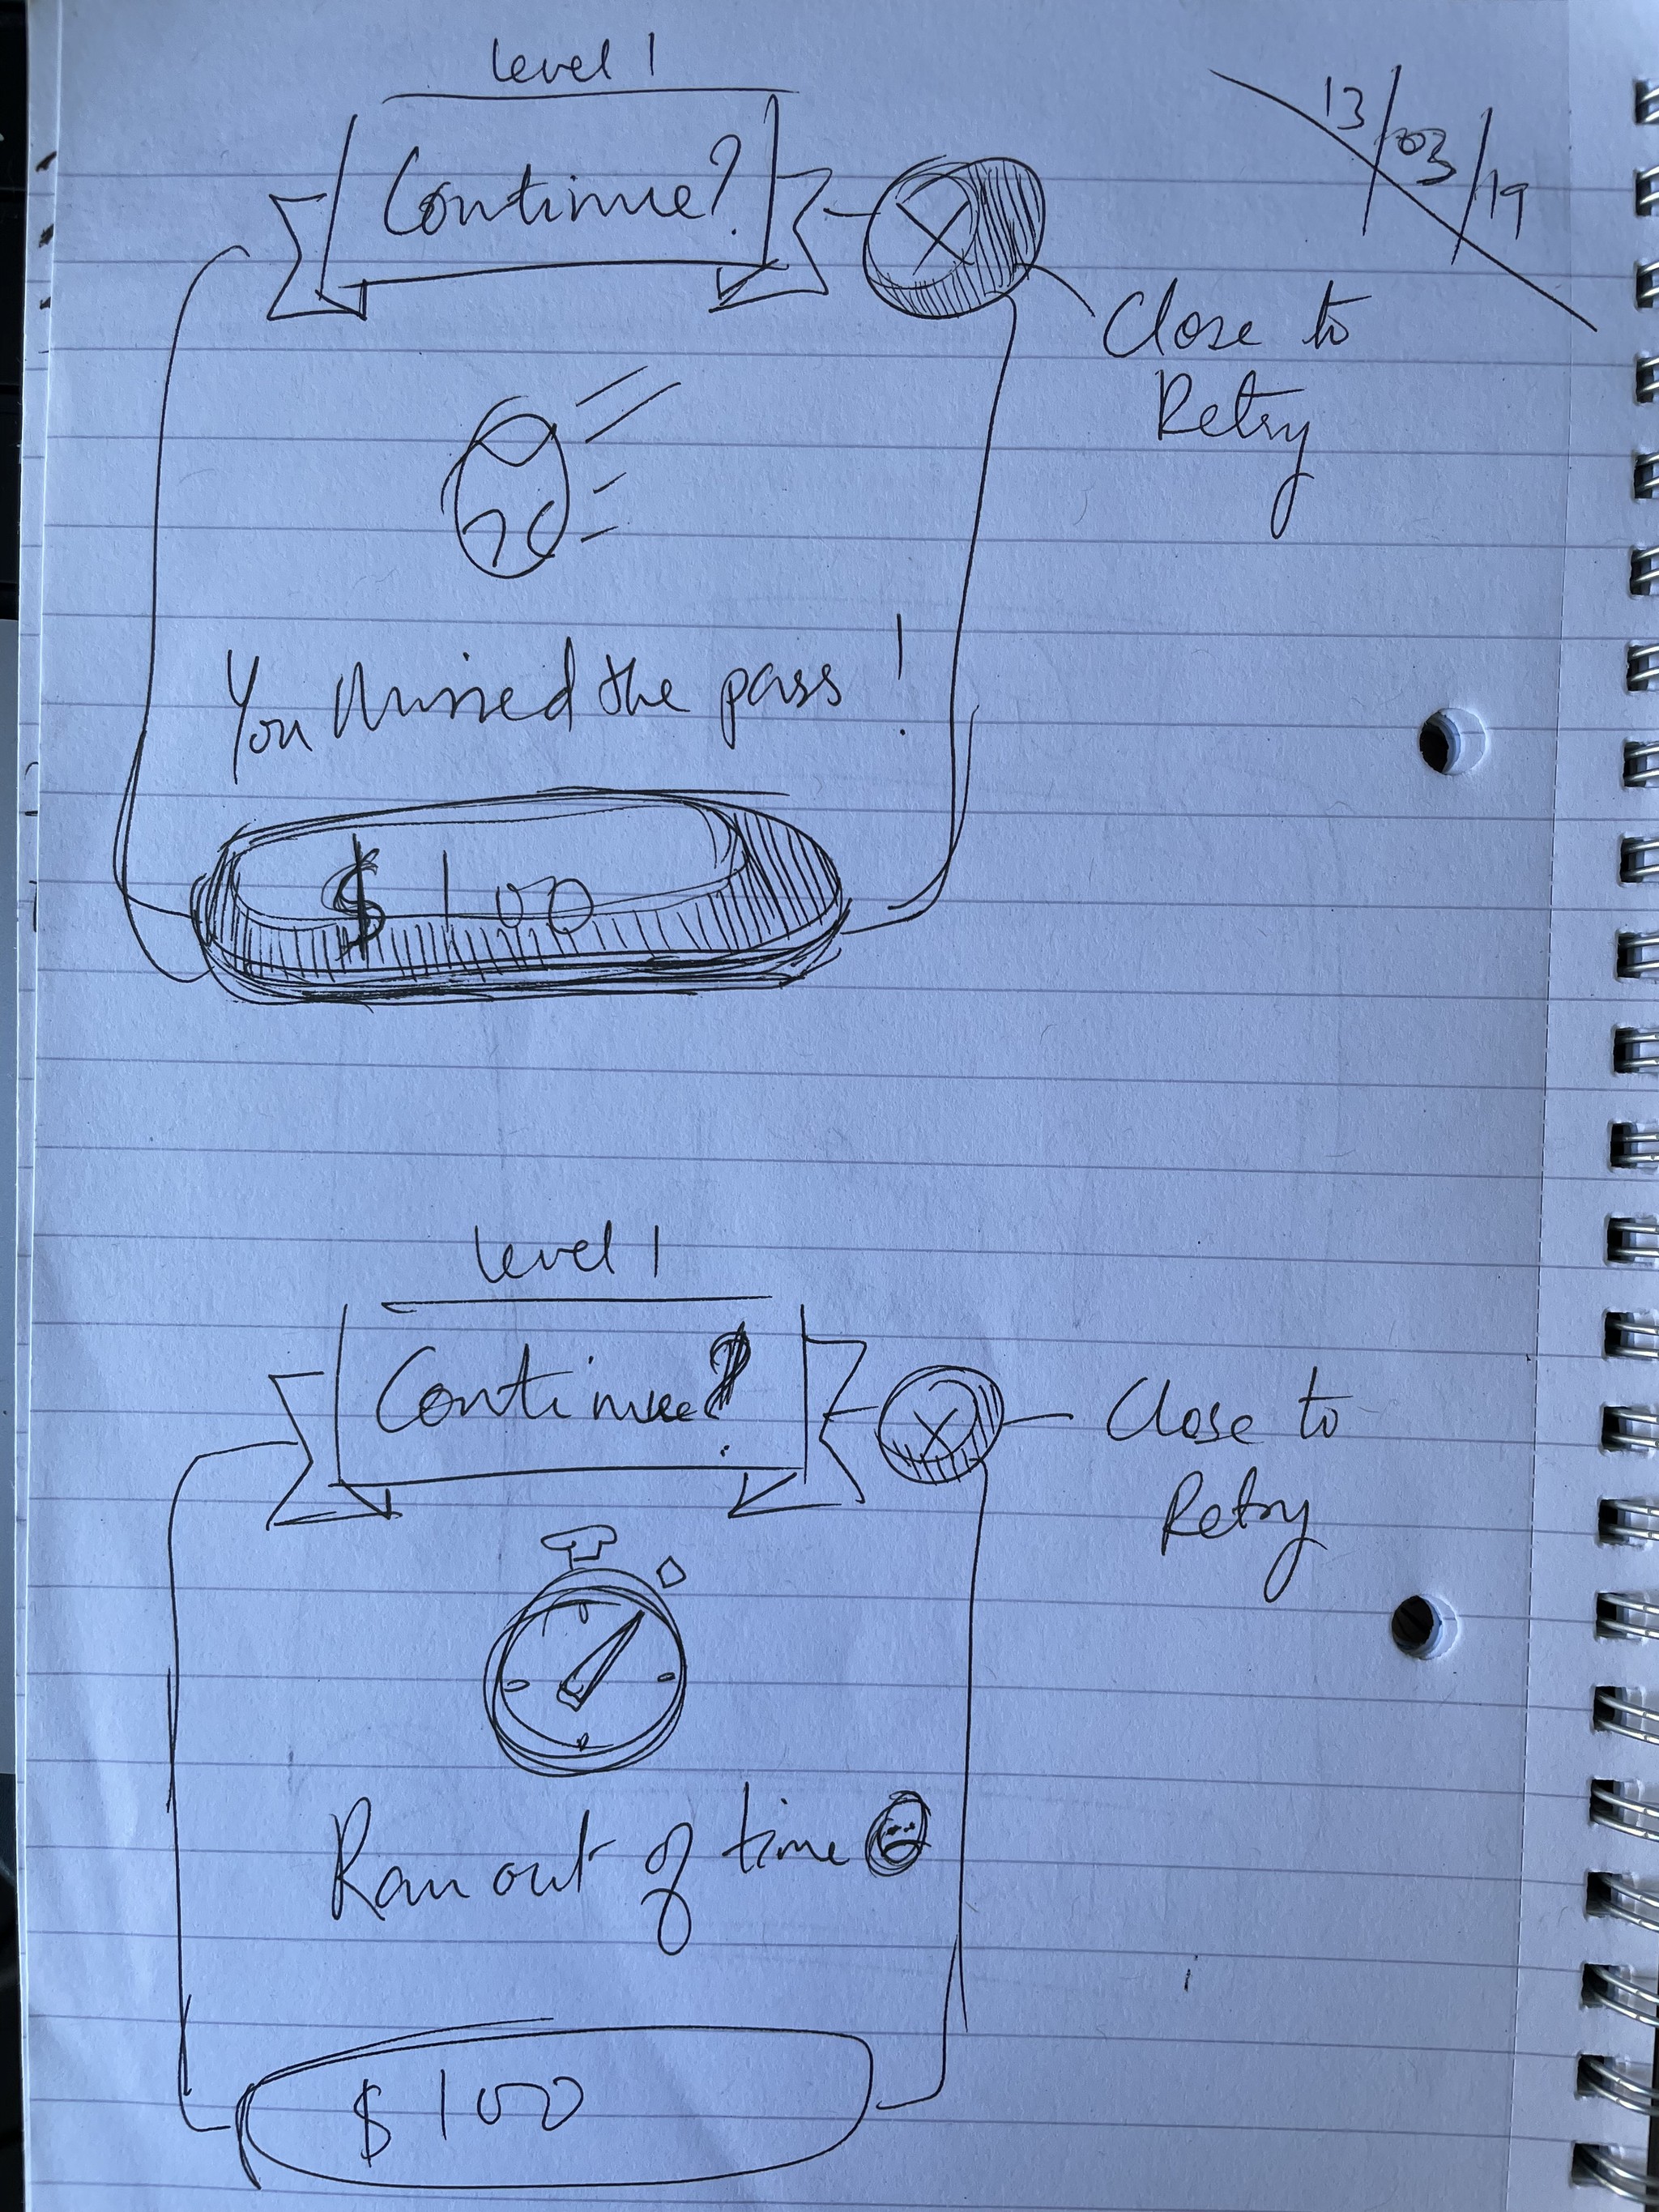 Level 1
13/03/19
Continue?
X
Close to
Retry
You Missed the pass!
$ 100
Level 1
Continue?
X
Close to
Retry
Ran out of time
$ 100